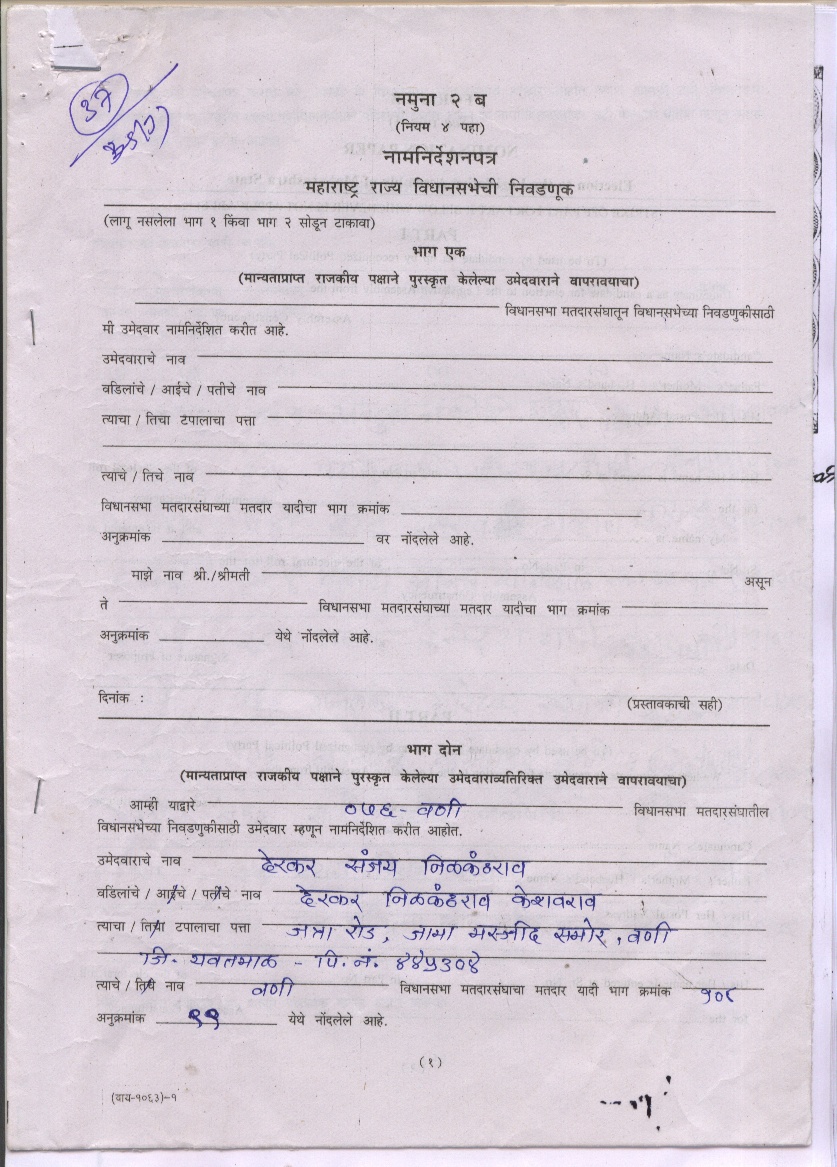 ३७
नमुना २ ब
(नियम ४ पहा)
नामनिर्देशनपत्र
महाराष्ट्र राज्य विधानसभेची निवडणूक
(लागू नसलेला भाग १ किंवा भाग २ सोडून टाकावा)
भाग एक
(मान्यताप्राप्त राजकीय पक्षाने पुरस्कृत केलेल्या उमेदवाराने वापरावयाचा)
विधानसभा मतदारसंघातून विधानसभेच्या निवडणुकीसाठी
मी उमेदवार नामनिर्देशित करीत आहे.
उमेदवाराचे नाव
वडिलांचे / आईचे / पतीचे नाव
त्याचा / तिचा टपालाचा पत्ता
त्याचे / तिचे नाव
विधानसभा मतदारसंघाच्या मतदार यादीचा भाग क्रमांक
अनुक्रमांक वर नोंदलेले आहे.
माझे नाव श्री./श्रीमती असून
ते विधानसभा मतदारसंघाच्या मतदार यादीचा भाग क्रमांक
अनुक्रमांक येथे नोंदलेले आहे.
दिनांक : (प्रस्तावकाची सही)
भाग दोन
(मान्यताप्राप्त राजकीय पक्षाने पुरस्कृत केलेल्या उमेदवाराव्यतिरिक्त उमेदवाराने वापरावयाचा)
आम्ही याद्वारे ०७६ - वणी विधानसभा मतदारसंघातील
विधानसभेच्या निवडणुकीसाठी उमेदवार म्हणून नामनिर्देशित करीत आहोत.
उमेदवाराचे नाव देरकर संजय निळकंठराव
वडिलांचे / आईचे / पतीचे नाव देरकर निळकंठराव केशवराव
त्याचा / तिचा टपालाचा पत्ता जत्रा रोड, जामा मस्जीद समोर, वणी
जि. यवतमाळ - पि. नं. ४४५३०४
त्याचे / तिचे नाव वणी विधानसभा मतदारसंघाचा मतदार यादी भाग क्रमांक १०८
अनुक्रमांक ९९ येथे नोंदलेले आहे.
(१)
(वाय-१०६३)-१